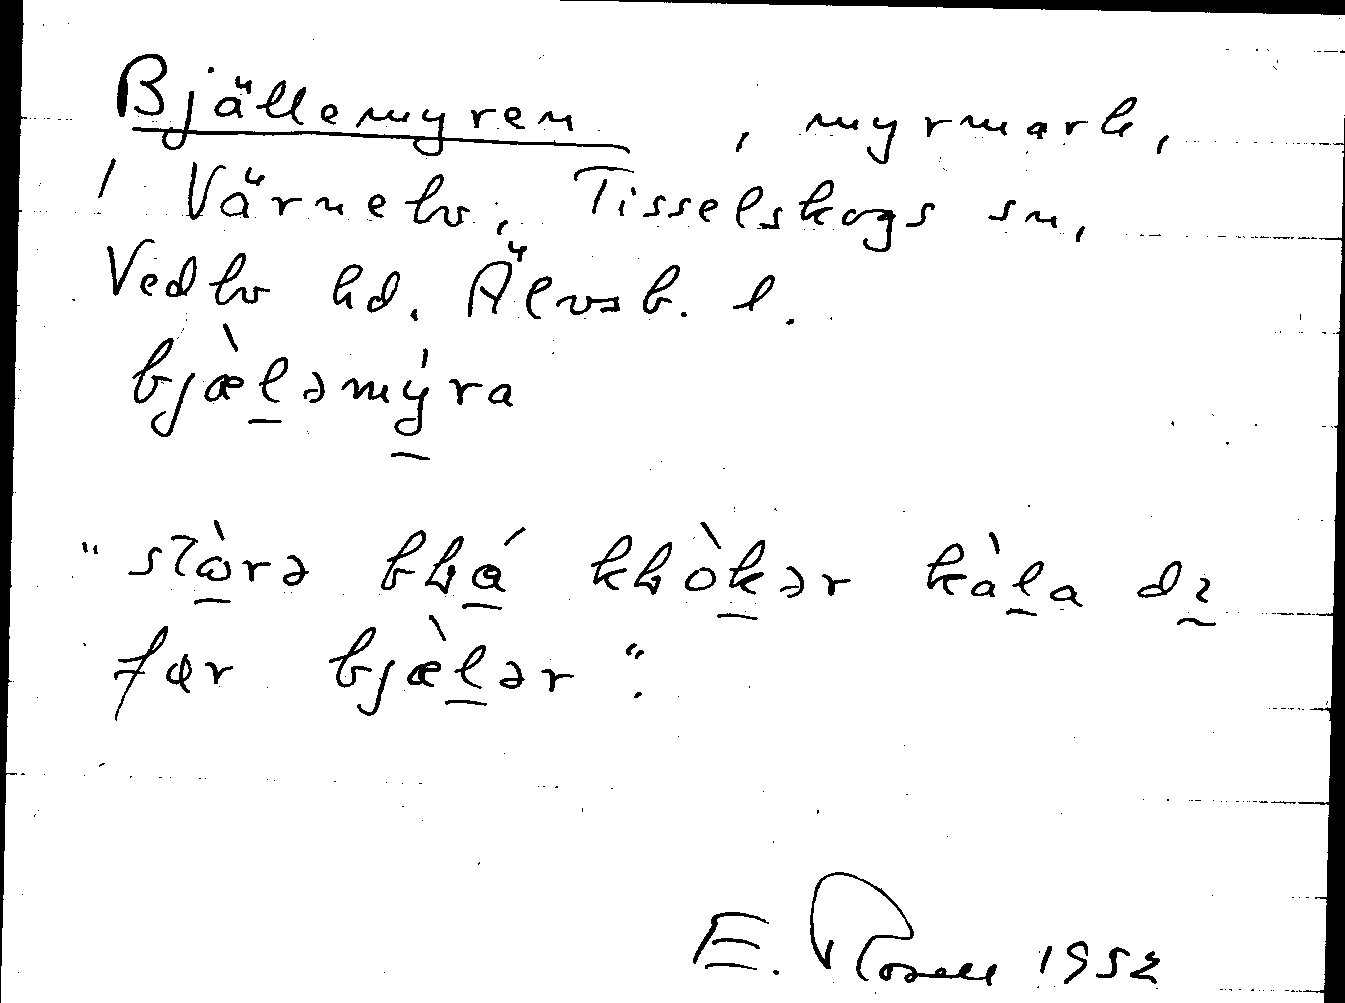 Bjällemyren, myrmark,
i Värnebo, Tisselskogs sn,
Vedbo hd. Älvsb. l.
bjæ̀ləmýra
"stòrə blá klòkər kàla dɩ
fɑr bjæ̀lər".
E. Rosell 1952